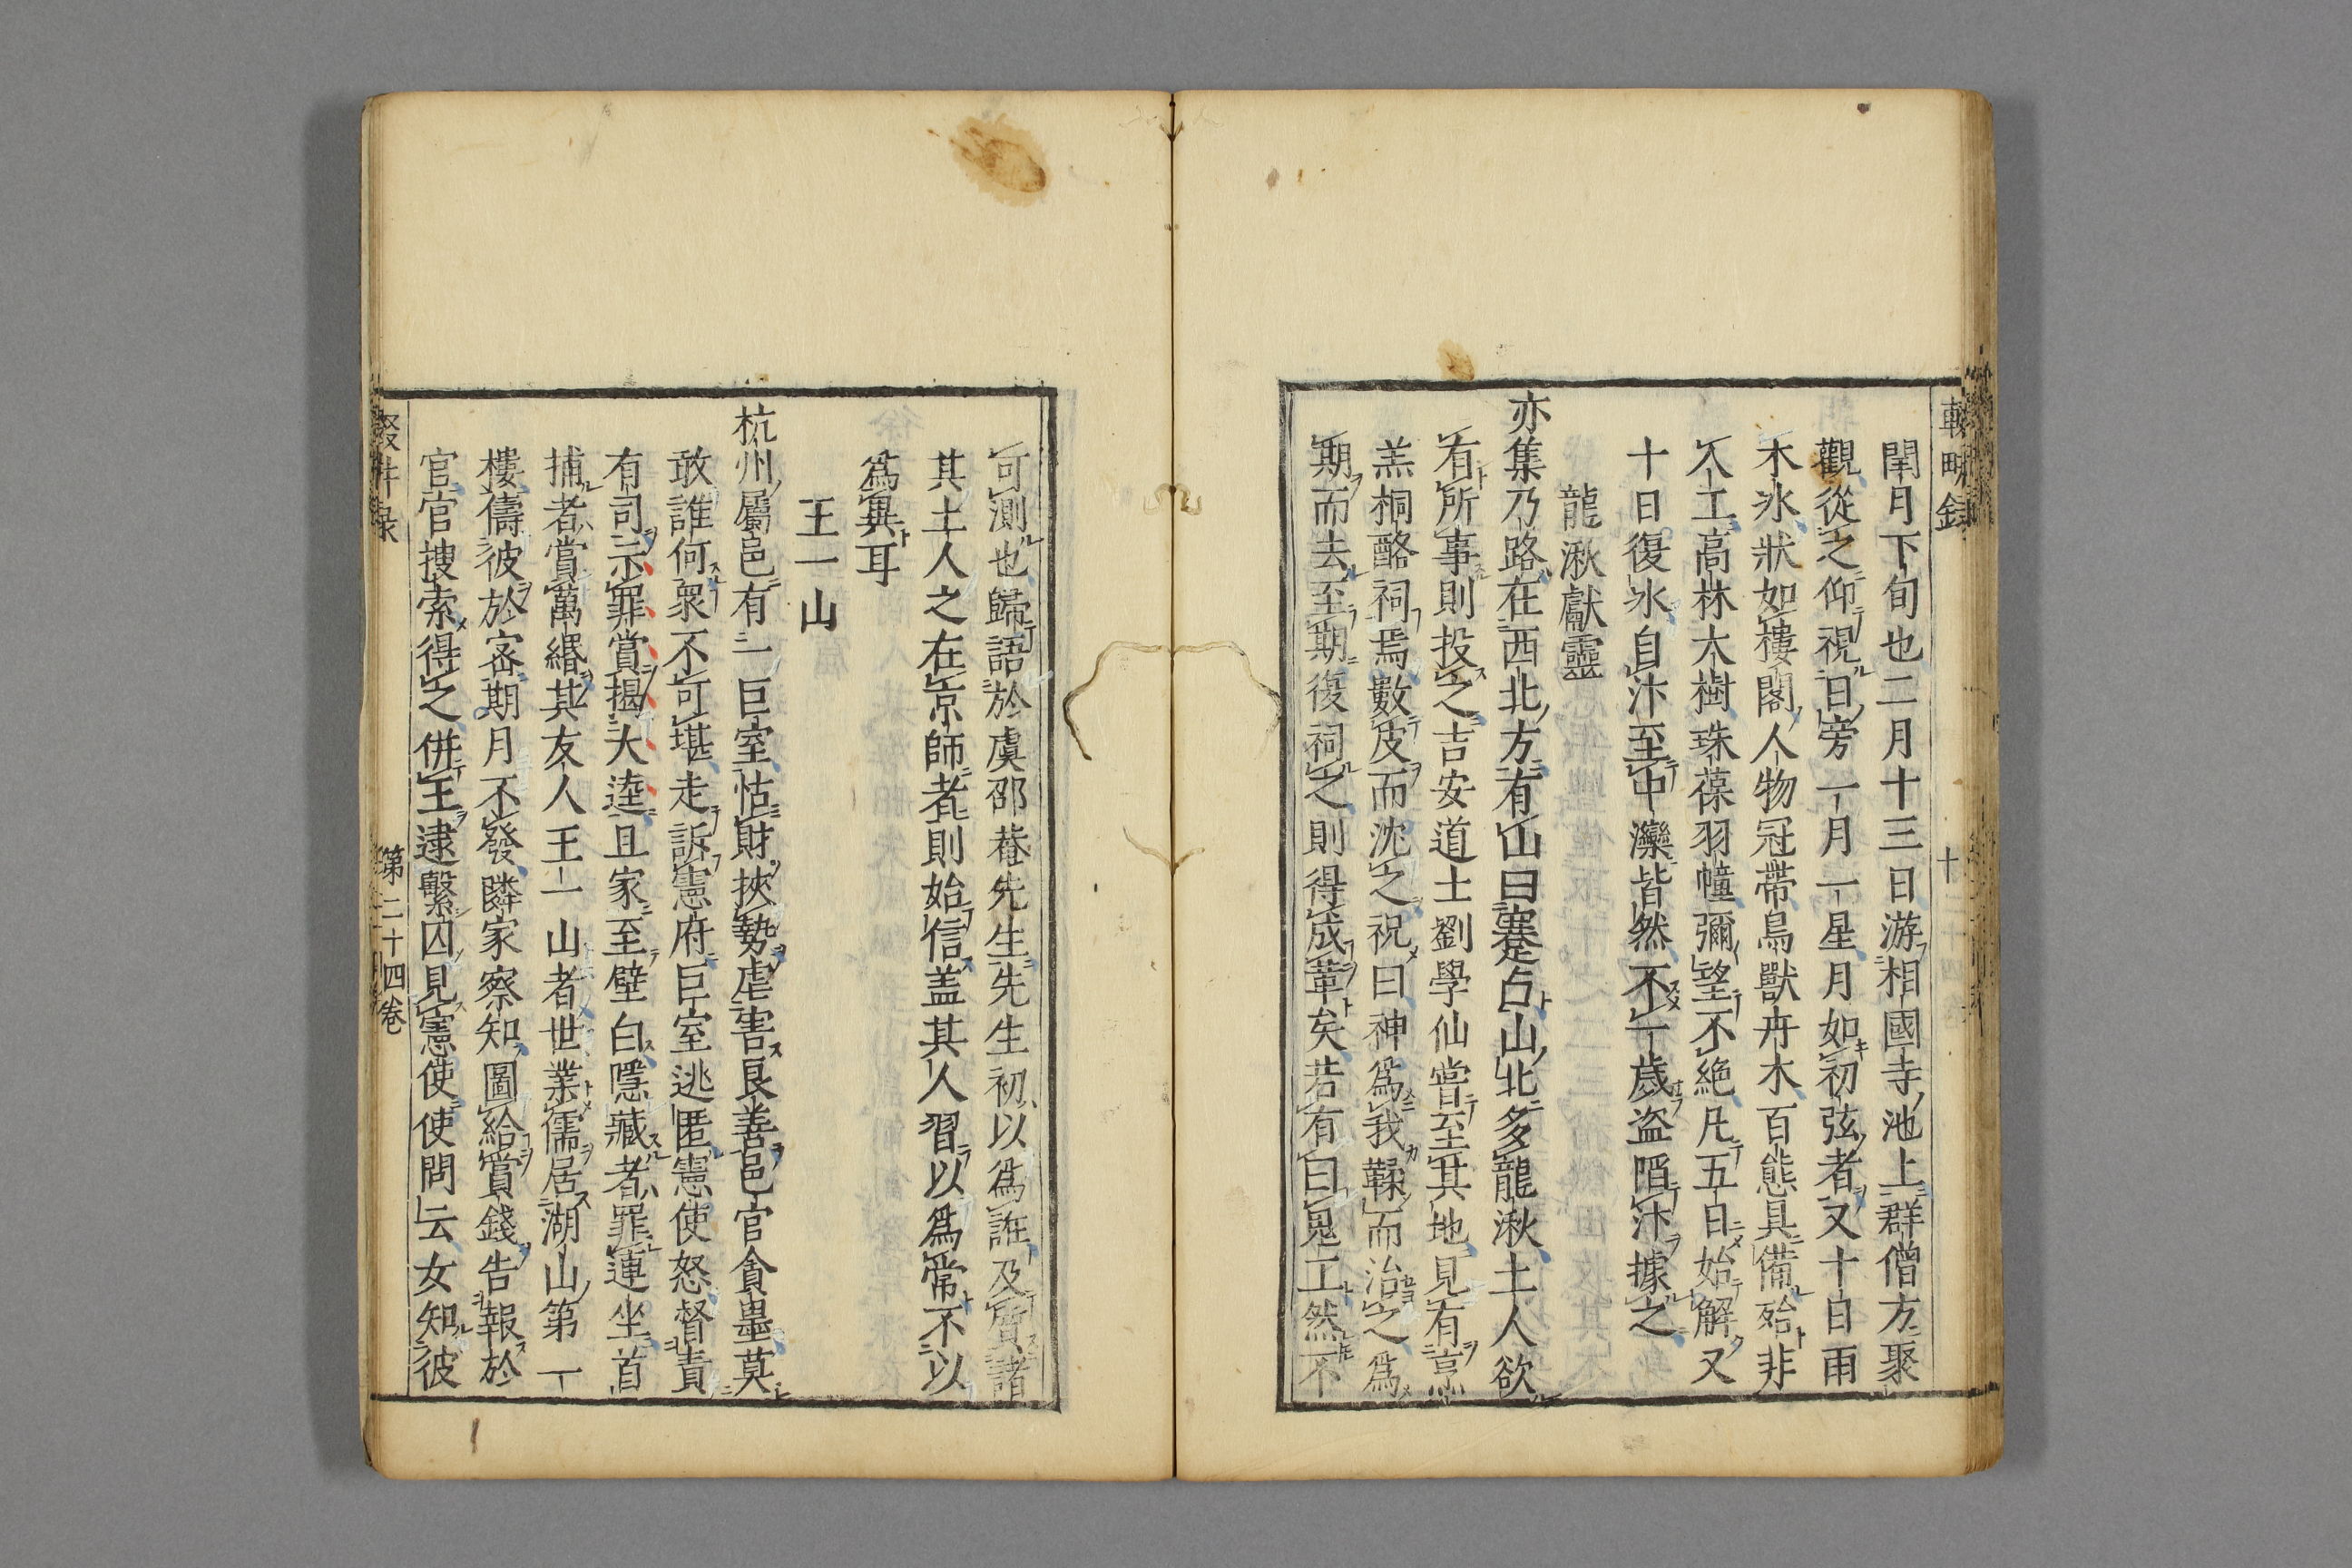 輟畊録
閏月下旬也二月十三日游相國寺池上群僧方聚
觀從之仰視日旁一月一星月如初弦者又十日雨
木氷狀如樓閣人物冠帶鳥獸卉木百態具備殆非
人工高林大樹珠葆羽幢彌望不絶凡五日始解又
十日復氷自汴至中灤皆然不一歲盜陷汴據之
龍湫獻靈
亦集乃路在西北方有山曰蹇占山北多龍湫土人欲
有所事則投之吉安道士劉學仙嘗至其地見有烹
羔桐酪祠焉數皮而沈之祝曰神爲我鞣而治之爲
期而去至期復祠之則得成革矣若有曰鬼工然不
可測也歸語於虞邵菴先生先生初以爲誑及質諸
其土人之在京師者則始信盖其人習以爲常不以
爲異耳
王一山
杭州屬邑有一巨室怙財挾勢虐害良善邑官貪蠱莫
敢誰何衆不可堪走訴憲府巨室逃匿憲使怒督責
有司示罪賞揭大逵且家至壁白隱藏者罪連坐首
捕者賞萬緡其友人王一山者世業儒居湖山第一
樓儔彼於密期月不發隣家察知圖給賞錢告報於
官官搜索得之併王逮繫囚見憲使使問云女知彼
輟畊録
第二十四卷